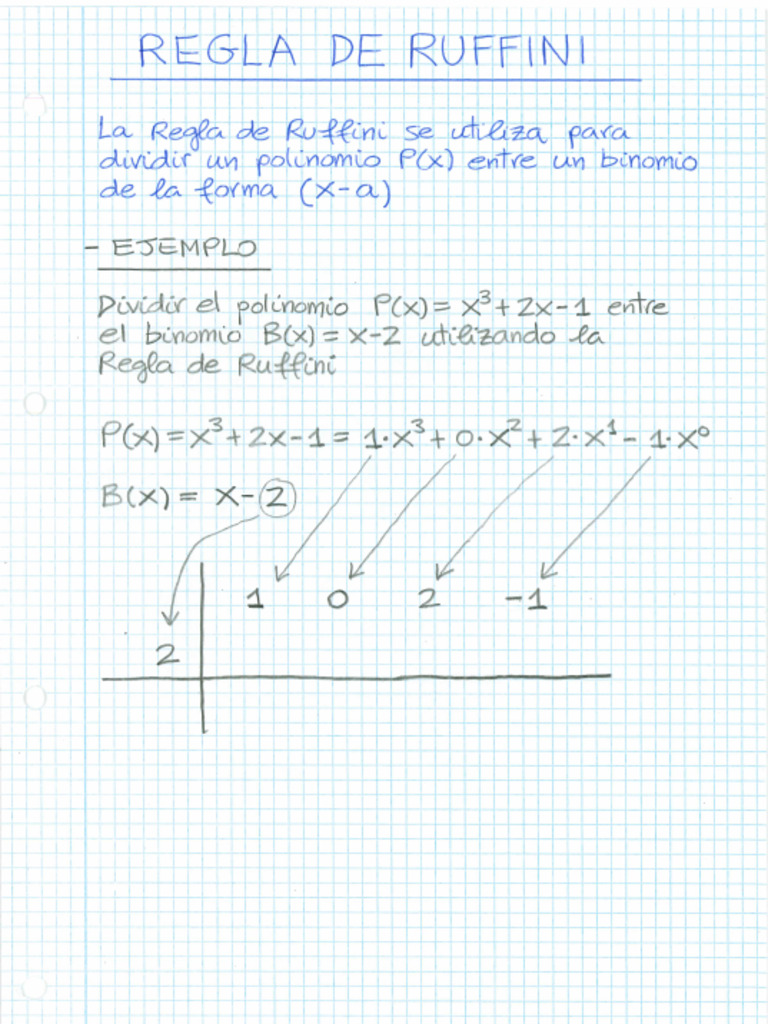 REGLA DE RUFFINI
La Regla de Ruffini se utiliza para
dividir un polinomio P(x) entre un binomio
de la forma (x-a)
- EJEMPLO
Dividir el polinomio P(x) = x³ + 2x - 1 entre
el binomio B(x) = x-2 utilizando la
Regla de Ruffini
P(x) = x³ + 2x - 1 = 1·x³ + 0·x² + 2·x¹ - 1·x⁰
B(x) = x - 2
1 0 2 -1
2